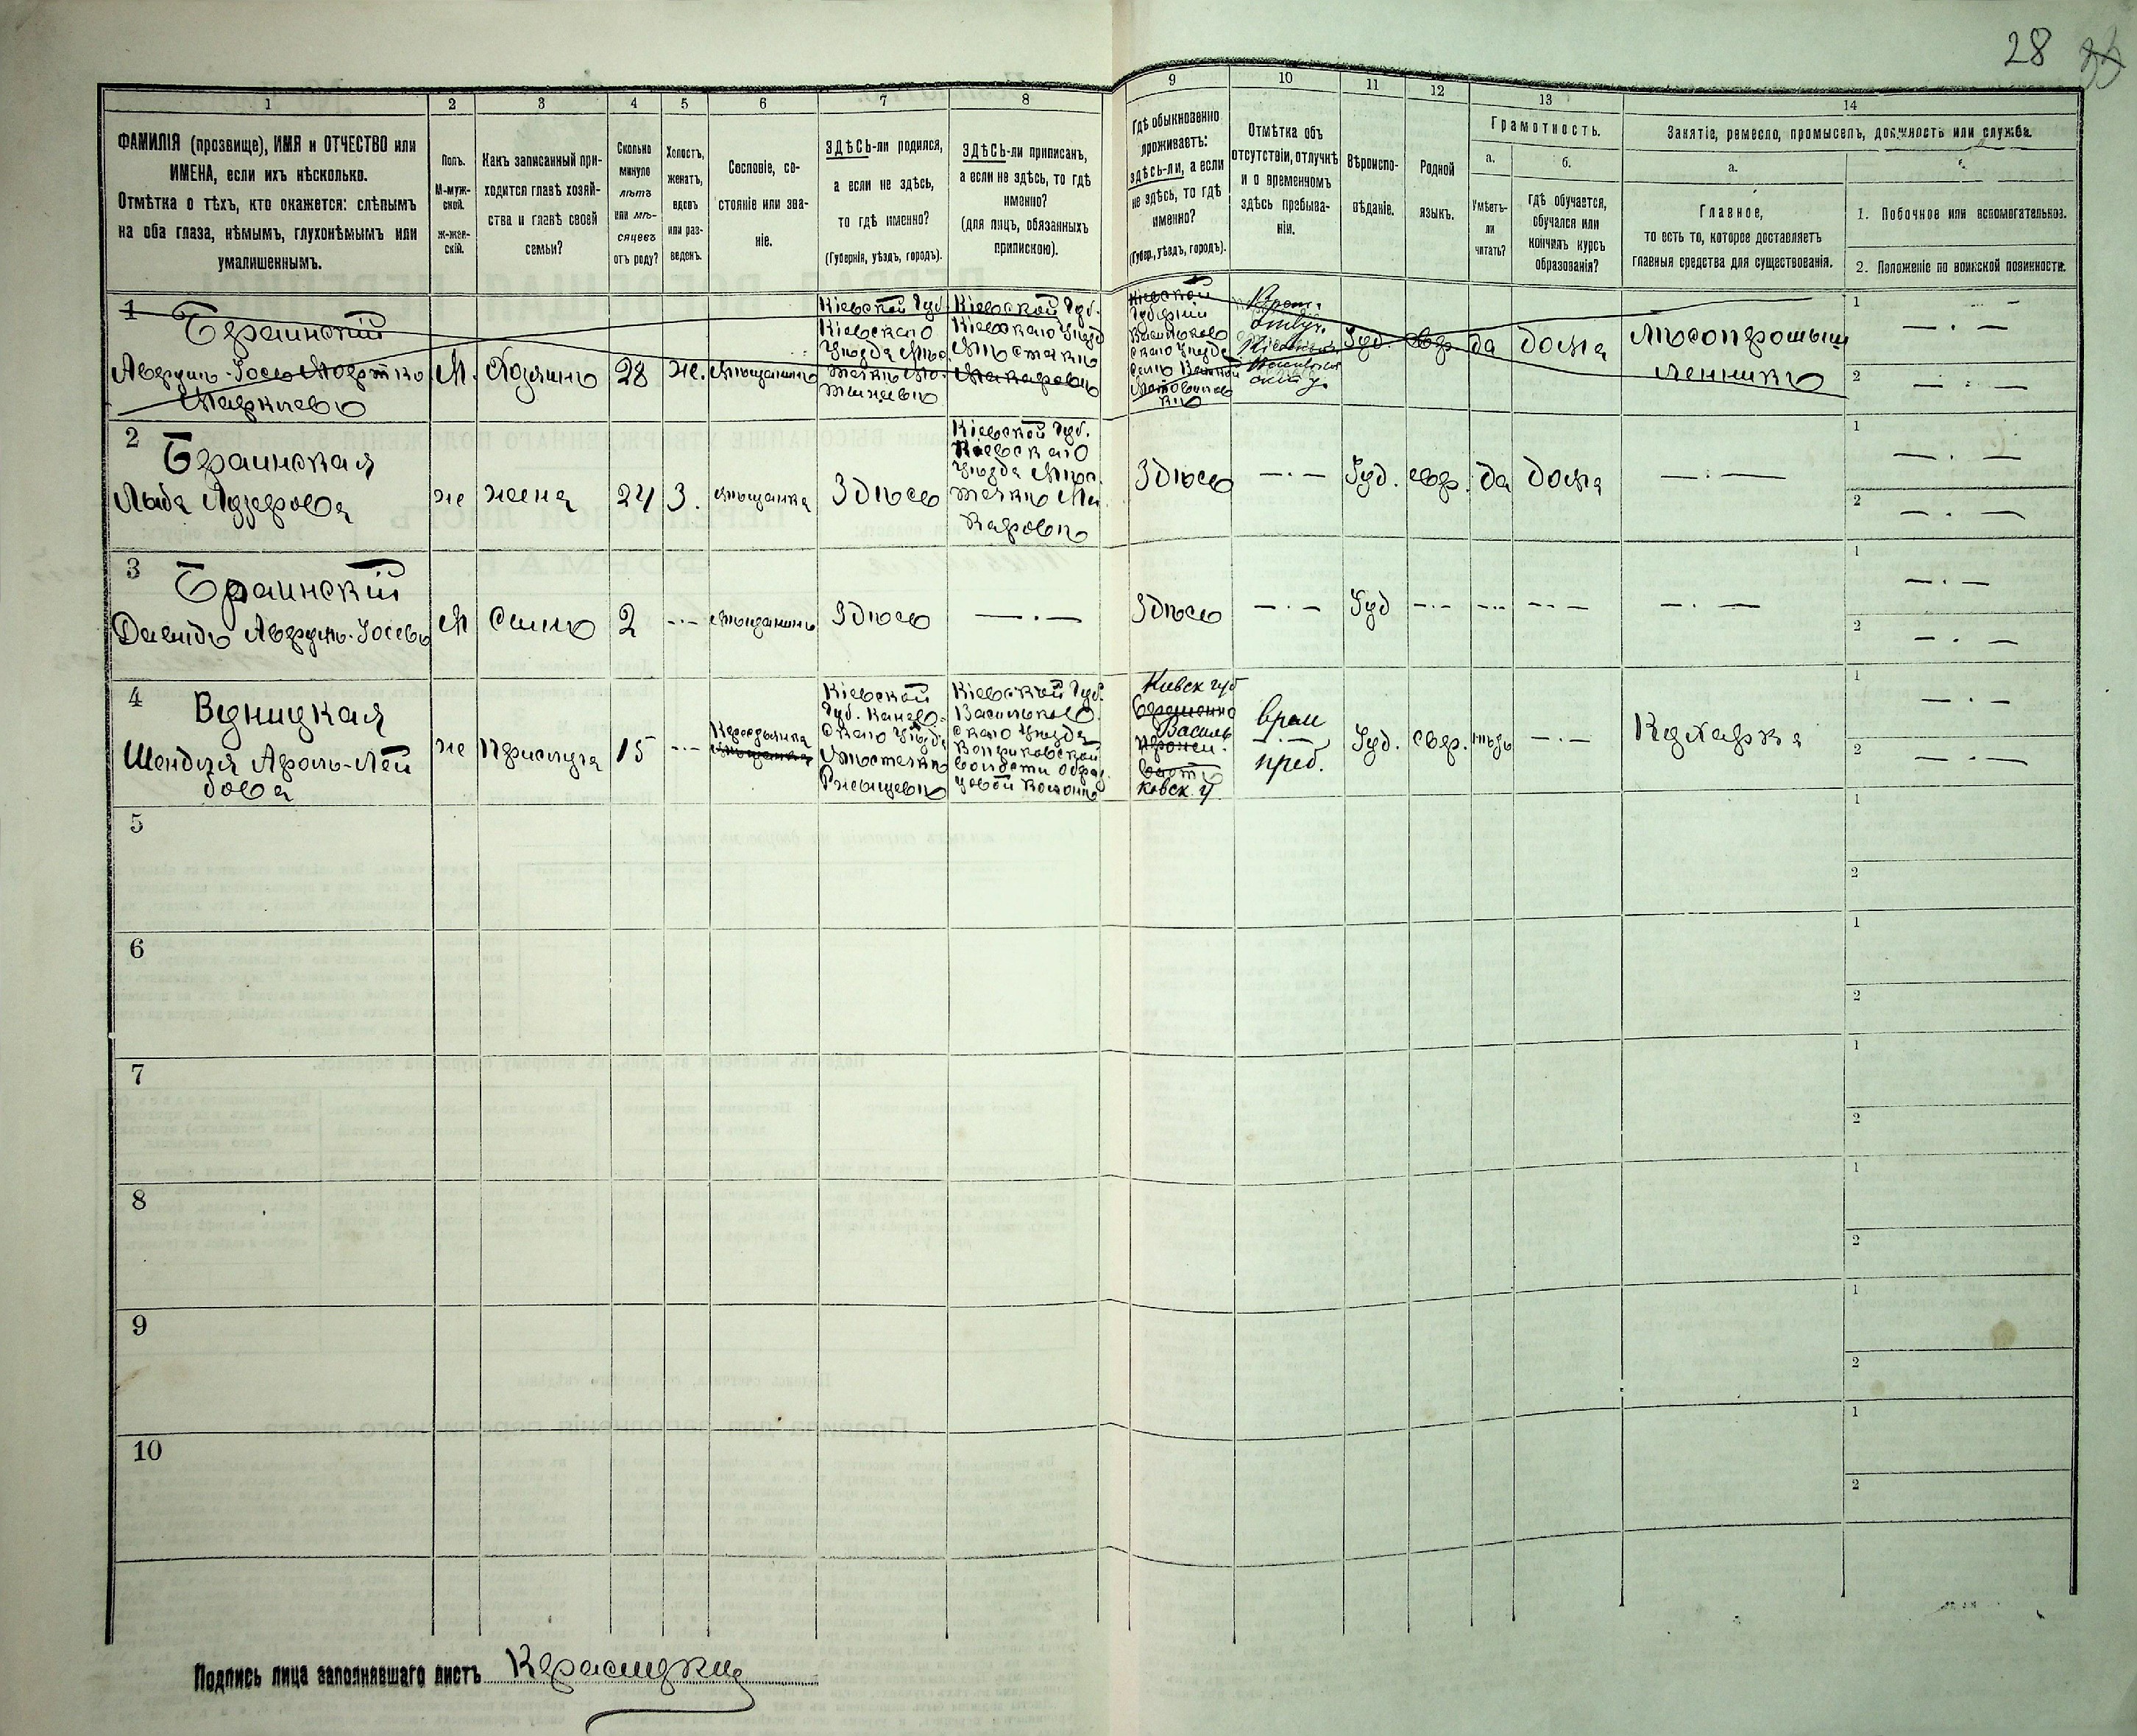 28
1
2
3
4
5
6
7
8
9
10
11
12
13
14
ФАМИЛІЯ (прозвище), ИМЯ и ОТЧЕСТВО или
ИМЕНА, если ихъ нѣсколько.
Отмѣтка о тѣхъ, кто окажется: слѣпымъ
на оба глаза, нѣмымъ, глухонѣмымъ или
умалишеннымъ.
Полъ.
М-муж-
ской.
ж-жен-
скій.
Какъ записанный при-
ходится главѣ хозяй-
ства и главѣ своей
семьи?
Сколько
минуло
лѣтъ
или мѣ-
сяцевъ
отъ роду?
Холостъ,
женатъ,
вдовъ
или раз-
веденъ.
Сословіе, со-
стояніе или зва-
ніе.
ЗДѢСЬ-ли родился,
а если не здѣсь,
то гдѣ именно?
(Губернія, уѣздъ, городъ).
ЗДѢСЬ-ли приписанъ,
а если не здѣсь, то гдѣ
именно?
(для лицъ, обязанныхъ
припискою).
Гдѣ обыкновенно
проживаетъ:
здѣсь-ли, а если
не здѣсь, то гдѣ
именно?
(Губер., уѣздъ, городъ).
Отмѣтка объ
отсутствіи, отлучкѣ
и о временномъ
здѣсь пребыва-
ніи.
Вѣроиспо-
вѣданіе.
Родной
языкъ.
Грамотность.
а.
Умѣетъ-
ли
читать?
б.
гдѣ обучается,
обучался или
кончилъ курсъ
образованія?
Занятіе, ремесло, промыселъ, должность или служба.
а.
Главное,
то есть то, которое доставляетъ
главныя средства для существованія.
1. Побочное или вспомогательное.
2. Положеніе по воинской повинности.
1
Браинский
Аврумъ-Іось Мортко
Марковъ
М.
Хозяинъ
28
же.
мѣщанинъ
Кіевской Губ.
Кіевскаго
Уѣзда Мѣс
Кіевской Губ.
Кіевскаго Уѣзда
Мѣстечко
Макаровъ
Кіевской
Губерніи
Васильков
скаго Уѣзда
Іуд.
евр.
да
дома
Лѣсопромыш
ленникъ
1
2
2
Браинская
же
жена
24
З.
мѣщанка
Здѣсь
Кіевской Губ.
Кіевскаго
Уѣзда Мѣс
течко Ма
каровъ
Здѣсь
Іуд.
евр.
да
дома
1
2
3
Браинскій
Давидъ Аврумъ-Іосевъ
М
Сынъ
2
мѣщанинъ
Здѣсь
Здѣсь
Іуд
1
2
4
Шендля Аронъ-Лей
бова
же
Прислуга
15
Кіевской
Губ. Канев-
скаго Уѣзда
Мѣстечко
Ржищевъ
Кіевской Губ.
Васильков
скаго Уѣзда
Киевск губ
Василь
ковск. у.
врем
преб.
Іуд.
евр.
нѣтъ
Кухарка
1
2
5
1
2
6
1
2
7
1
2
8
1
2
9
1
2
10
1
2
Подпись лица заполнявшаго листъ